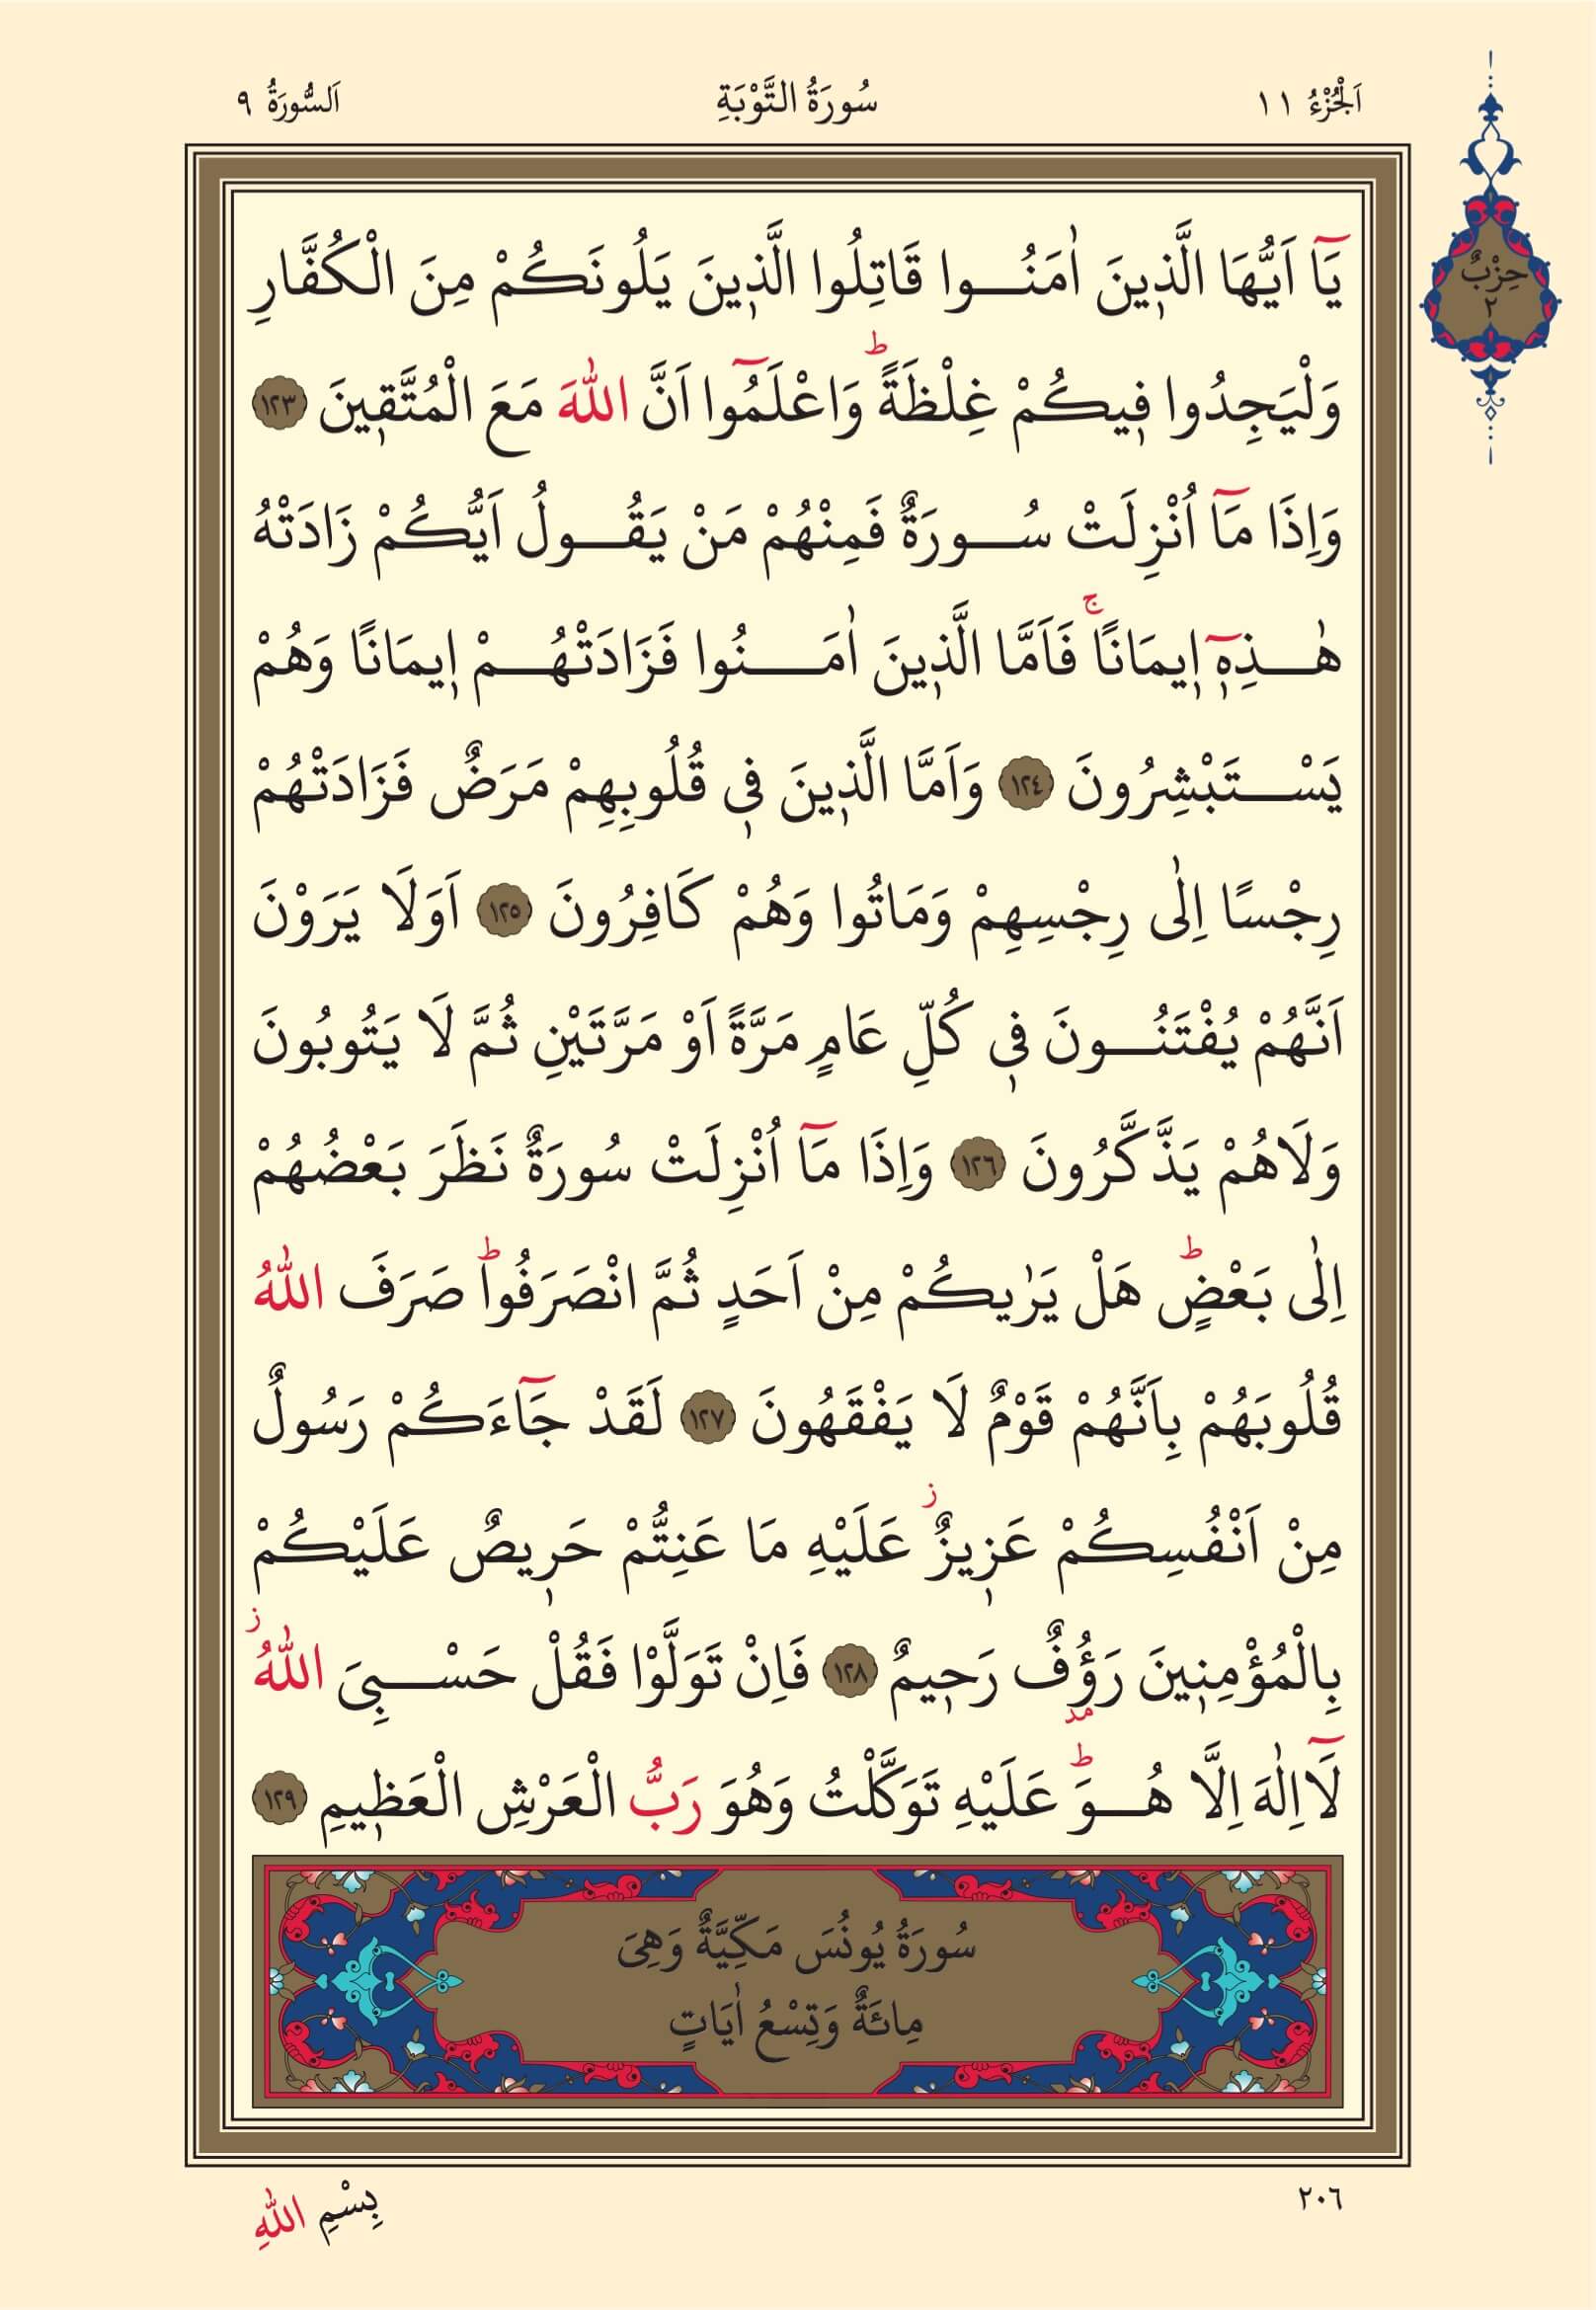 اَلْجُزْءُ ١١
سُورَةُ التَّوْبَةِ
اَلسُّورَةُ ٩
حِزْبٌ
٢
يَٓا اَيُّهَا الَّذ۪ينَ اٰمَنُــوا قَاتِلُوا الَّذ۪ينَ يَلُونَكُمْ مِنَ الْكُفَّارِ
وَلْيَجِدُوا ف۪يكُمْ غِلْظَةًۜ وَاعْلَمُٓوا اَنَّ اللّٰهَ مَعَ الْمُتَّق۪ينَ ١٢٣
وَاِذَا مَٓا اُنْزِلَتْ سُــورَةٌ فَمِنْهُمْ مَنْ يَقُــولُ اَيُّكُمْ زَادَتْهُ
هٰــذِه۪ٓ ا۪يمَانًاۚ فَاَمَّا الَّذ۪ينَ اٰمَــنُوا فَزَادَتْهُــمْ ا۪يمَانًا وَهُمْ
يَسْــتَبْشِرُونَ ١٢٤ وَاَمَّا الَّذ۪ينَ ف۪ي قُلُوبِهِمْ مَرَضٌ فَزَادَتْهُمْ
رِجْسًا اِلٰى رِجْسِهِمْ وَمَاتُوا وَهُمْ كَافِرُونَ ١٢٥ اَوَلَا يَرَوْنَ
اَنَّهُمْ يُفْتَنُــونَ ف۪ي كُلِّ عَامٍ مَرَّةً اَوْ مَرَّتَيْنِ ثُمَّ لَا يَتُوبُونَ
وَلَاهُمْ يَذَّكَّرُونَ ١٢٦ وَاِذَا مَٓا اُنْزِلَتْ سُورَةٌ نَظَرَ بَعْضُهُمْ
اِلٰى بَعْضٍۜ هَلْ يَرٰيكُمْ مِنْ اَحَدٍ ثُمَّ انْصَرَفُواۜ صَرَفَ اللّٰهُ
قُلُوبَهُمْ بِاَنَّهُمْ قَوْمٌ لَا يَفْقَهُونَ ١٢٧ لَقَدْ جَٓاءَكُمْ رَسُولٌ
مِنْ اَنْفُسِكُمْ عَز۪يزٌۘ عَلَيْهِ مَا عَنِتُّمْ حَر۪يصٌ عَلَيْكُمْ
بِالْمُؤْمِن۪ينَ رَؤُ۫فٌ رَح۪يمٌ ١٢٨ فَاِنْ تَوَلَّوْا فَقُلْ حَسْــبِيَ اللّٰهُۘ
لَٓااِلٰهَ اِلَّا هُــوَۜ عَلَيْهِ تَوَكَّلْتُ وَهُوَ رَبُّ الْعَرْشِ الْعَظ۪يمِ ١٢٩
سُورَةُ يُونُسَ مَكِّيَّةٌ وَهِيَ
مِائَةٌ وَتِسْعُ اٰيَاتٍ
٢٠٦
بِسْمِ اللّٰهِ